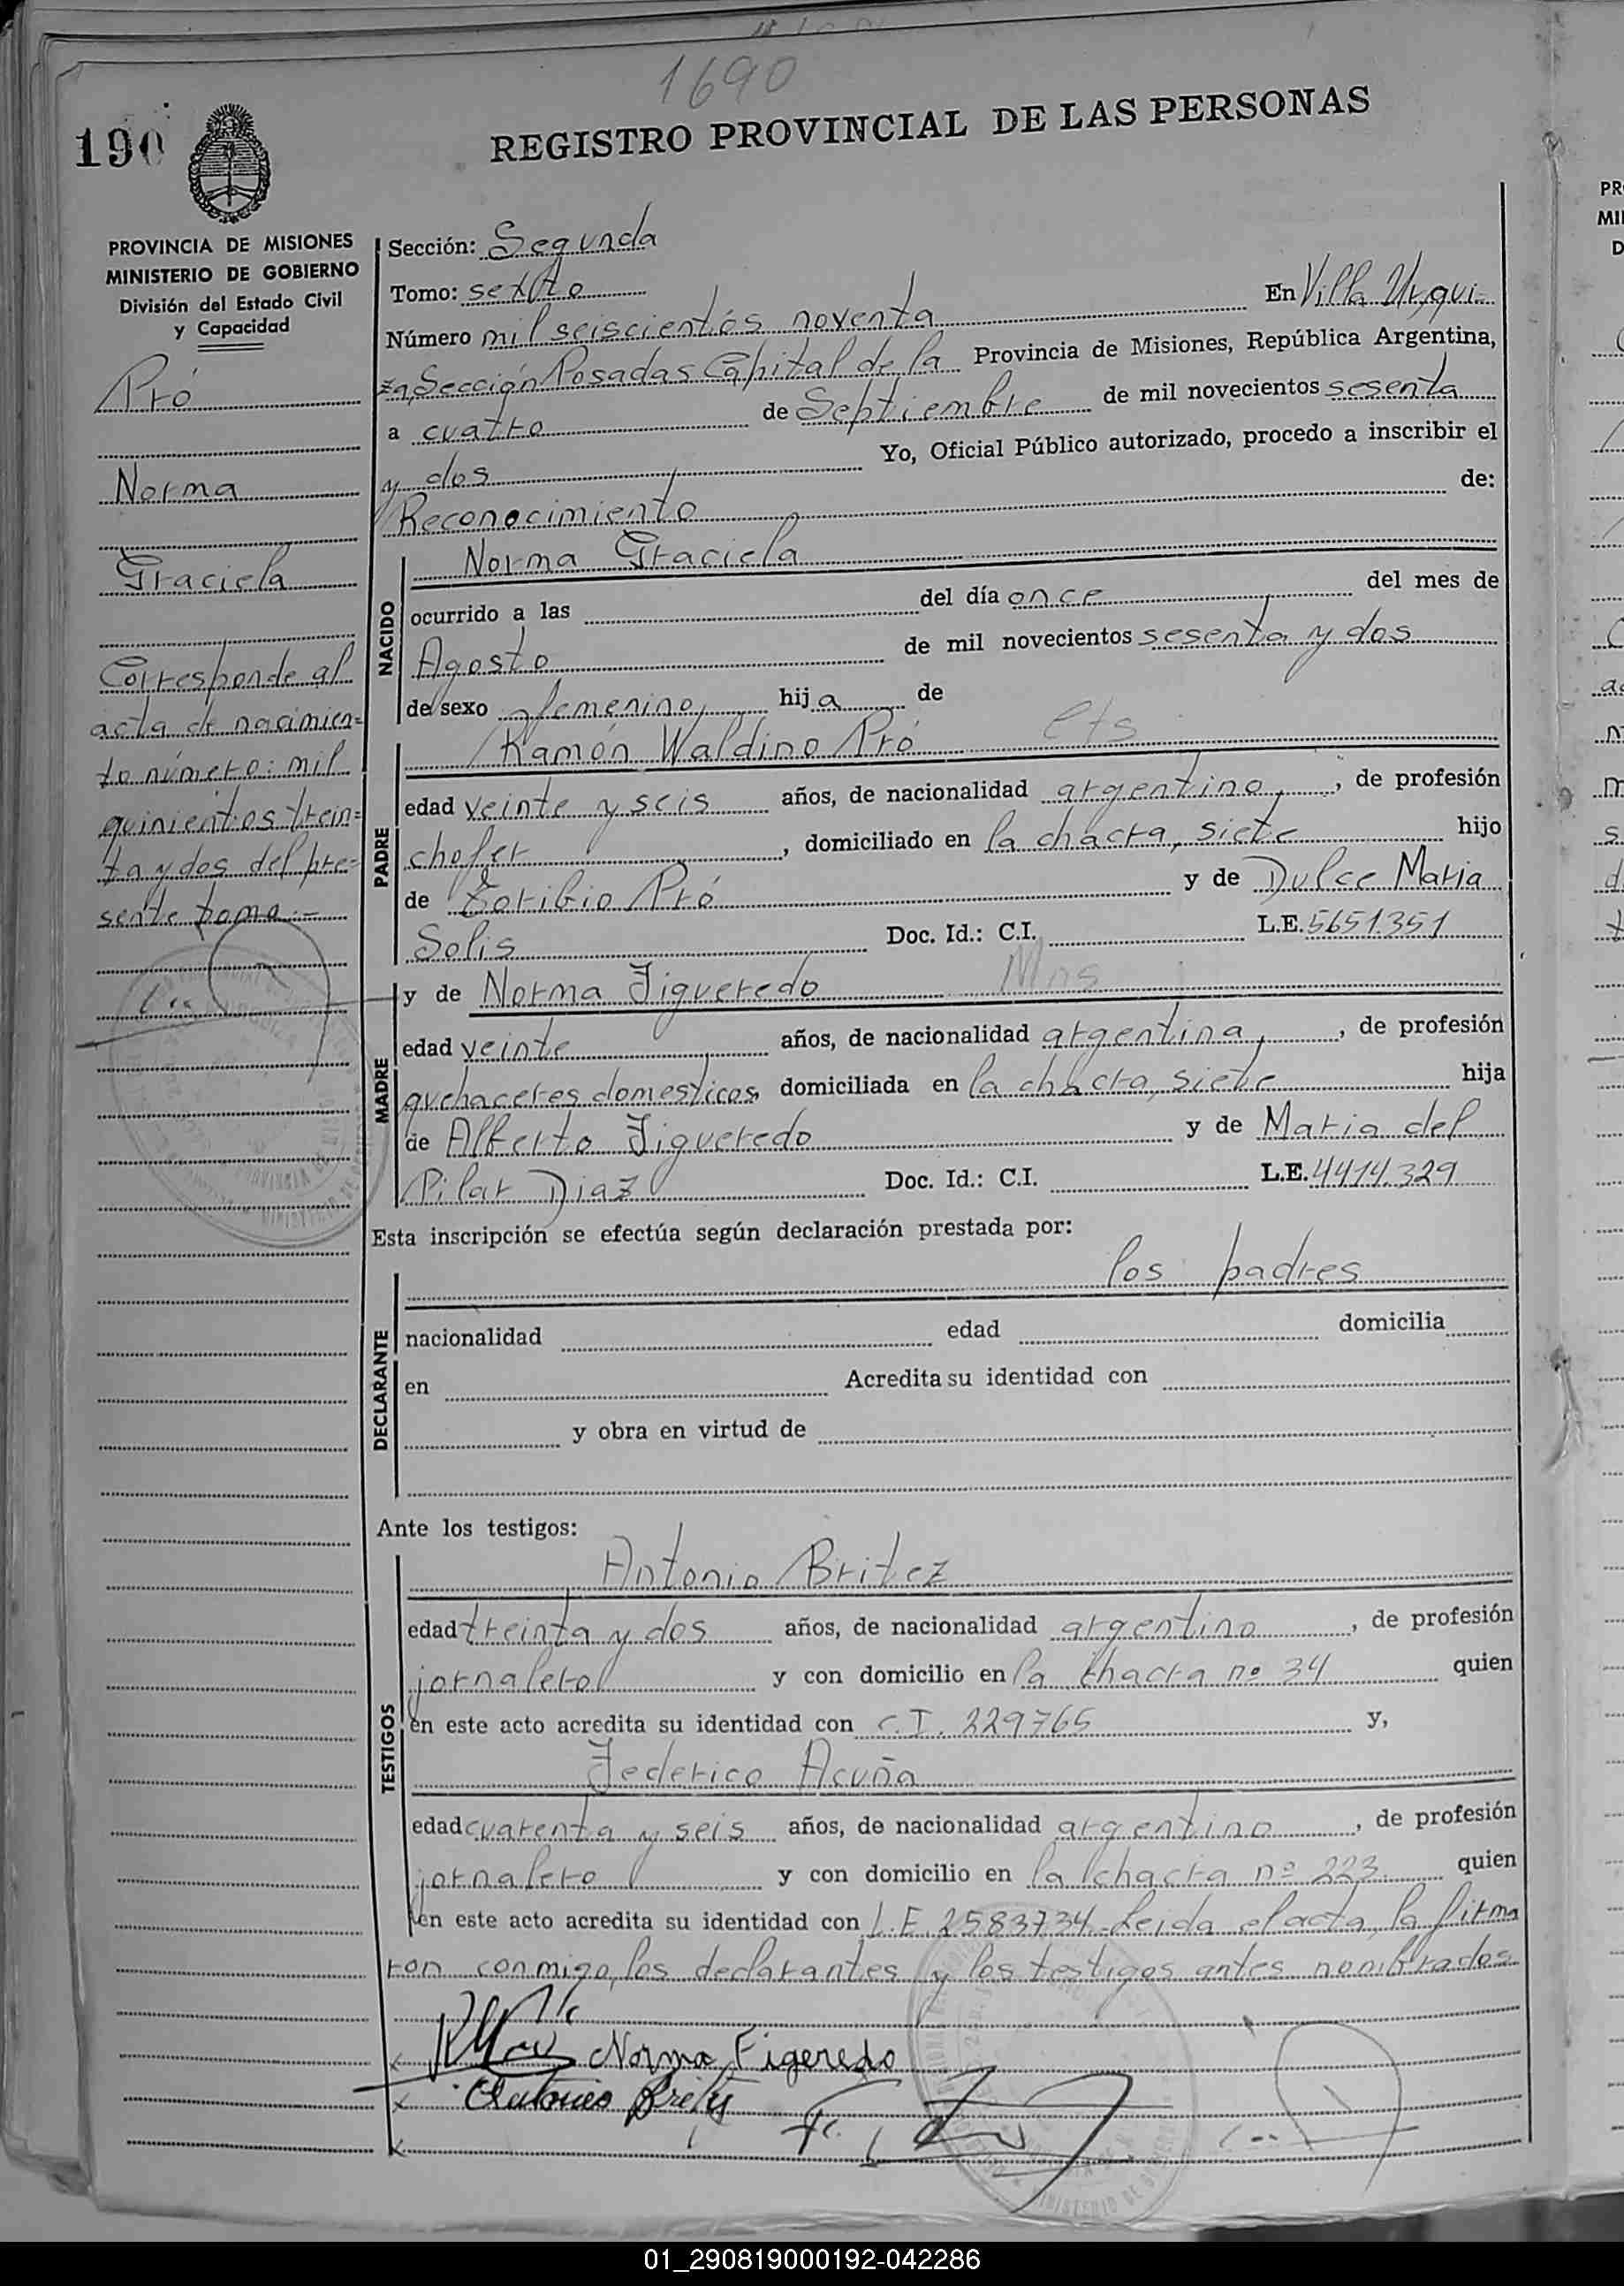 1690
190
REGISTRO PROVINCIAL DE LAS PERSONAS
PROVINCIA DE MISIONES
MINISTERIO DE GOBIERNO
División del Estado Civil
y Capacidad
Pró
Norma
Graciela
Corresponde al
acta de nacimien=
to número: mil
quinientos trein=
ta y dos del pre=
sente tomo.-
Sección: Segunda
Tomo: sexto
Número mil seiscientos noventa En Villa Urqui-
za, Sección Posadas Capital de la Provincia de Misiones, República Argentina,
a cuatro de Septiembre de mil novecientos sesenta
y dos Yo, Oficial Público autorizado, procedo a inscribir el
Reconocimiento de:
NACIDO
Norma Graciela
ocurrido a las del día once del mes de
Agosto de mil novecientos sesenta y dos
de sexo femenino, hija de
PADRE
Ramón Waldino Pró
edad veinte y seis años, de nacionalidad argentino, , de profesión
chofer , domiciliado en la chacra, siete hijo
de Toribio Pró y de Dulce Maria
Solis Doc. Id.: C.I. L.E. 5651.351
MADRE
y de Norma Figueredo Mns
edad veinte años, de nacionalidad argentina, , de profesión
quehaceres domesticos, domiciliada en la chacra, siete hija
de Alberto Figueredo y de Maria del
Pilar Diaz Doc. Id.: C.I. L.E. 4414.329
Esta inscripción se efectúa según declaración prestada por:
DECLARANTE
los padres
nacionalidad edad domicilia
en Acredita su identidad con
y obra en virtud de
Ante los testigos:
TESTIGOS
Antonio Britez
edad treinta y dos años, de nacionalidad argentino , de profesión
jornalero y con domicilio en la chacra nº 34 quien
en este acto acredita su identidad con C.I. 229765 y,
Federico Acuña
edad cuarenta y seis años, de nacionalidad argentino , de profesión
jornalero y con domicilio en la chacra nº 223 quien
en este acto acredita su identidad con L.E. 2583734. Leida el acta, la firma
ron conmigo, los declarantes y los testigos antes nombrados
Norma Figeredo
Antonio Britez
01_290819000192-042286